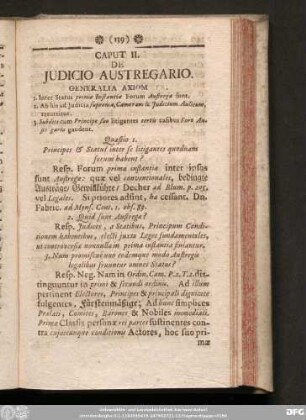 (139)
CAPUT II.
DE
JUDICIO AUSTREGARIO.
GENERALIA AXIOM.
1. Inter Status primæ Instantiæ Forum Austregæ sunt.
2. Ab his ad Judicia suprema, Cameram & Judicium Aulicum,
3. Subditi cum Principe suo litigantes certis casibus Foro Aust-
gario gaudent.
Quæstio 1.
Principes & Status inter se litigantes quodnam
forum habent?
Resp. Forum primæ instantiæ inter ipsos
sunt Austregæ: quæ vel conventionales,
Austräge / Gewillkührte / Decher ad Blum. p. 203,
vel Legales. Si priores adsint, hæ cessant. Dn.
Fabric. ad Myns. Cent. 1. obs. 59.
2. Quid sunt Austregæ?
Resp. Judices, a Statibus, Principum Condi-
tionem habentibus, electi juxta Leges fundamentales,
ut controversia nonnullam prima instantia finiantur.
3. Num promiscui uno eodemque modo Austregis
legalibus fruuntur omnes Status?
Resp. Neg. Nam in Ordin. Cam. P. 2. T. 2. dis-
tinguuntur in primi & secundi ordinis. Ad illum
pertinent Electores, Principes & principali dignitate
fulgentes, Fürstenmäßige; Ad hunc simplices
Prælati, Comites, Barones & Nobiles immediati.
Primæ Classis personæ rei partes sustinentes con-
tra cujuscunque conditionis Actores, hoc suo pri-
mæ